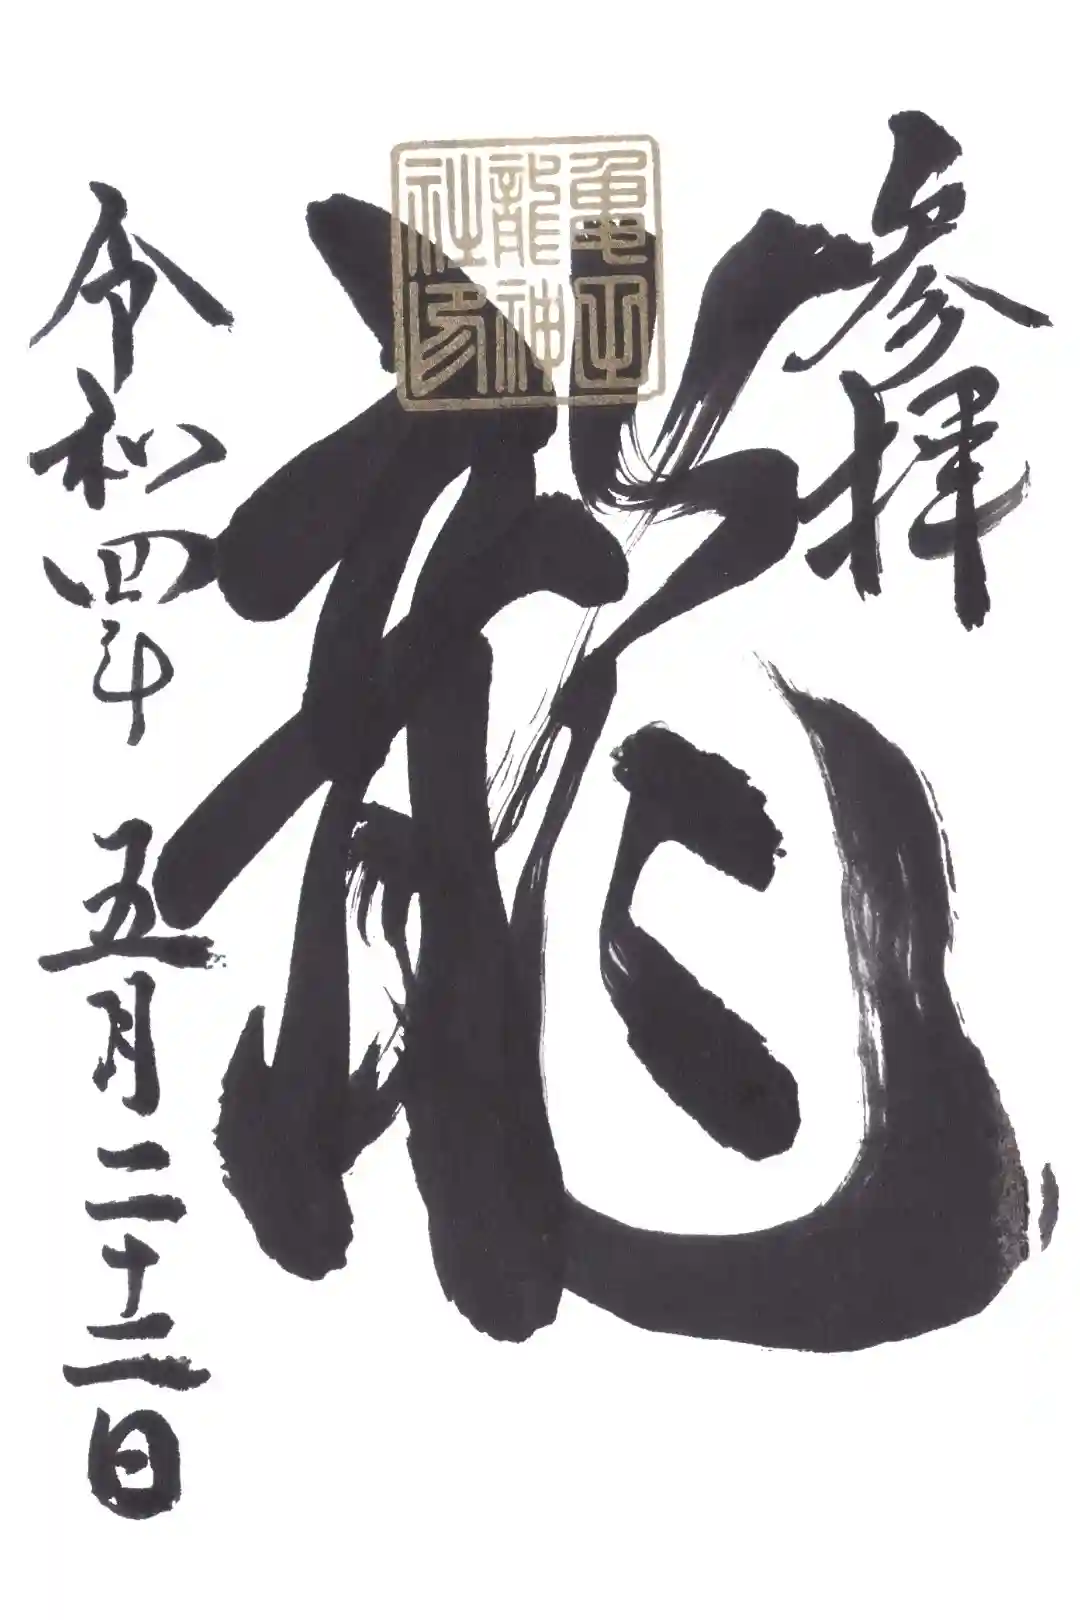 参拝
龍
亀山
龍神
社印
令和四年 五月二十二日